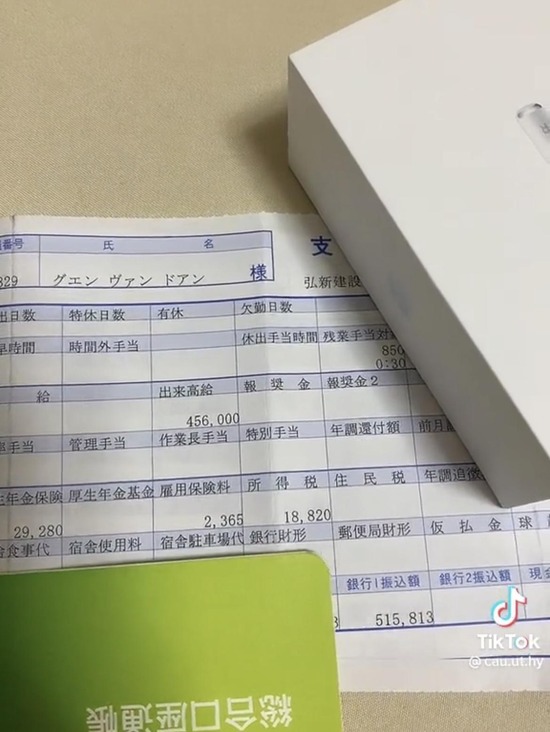 番号 氏 名 支
829 グエン ヴァン ドアン 様 弘新建設
出日数 特休日数 有休 欠勤日数
早時間 時間外手当 休出手当時間 残業手当対
850
0:30
給 出来高給 報奨金 報奨金2
456,000
手当 管理手当 作業長手当 特別手当 年調還付額 前月
生年金保険 厚生年金基金 雇用保険料 所得税 住民税 年調追徴
29,280 2,365 18,820
食事代 宿舎使用料 宿舎駐車場代 銀行財形 郵便局財形 仮払金 球
銀行1振込額 銀行2振込額 現金
3 515,813
総合口座通帳
TikTok
@cau.ut.hy